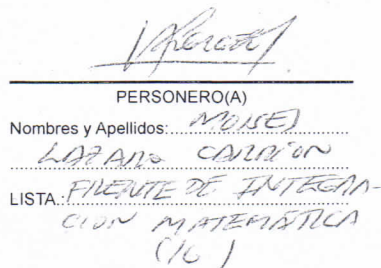 PERSONERO(A)
Nombres y Apellidos: MOISES
LAZARO CARRION
LISTA.: FRENTE DE INTEGRA-
CION MATEMATICA